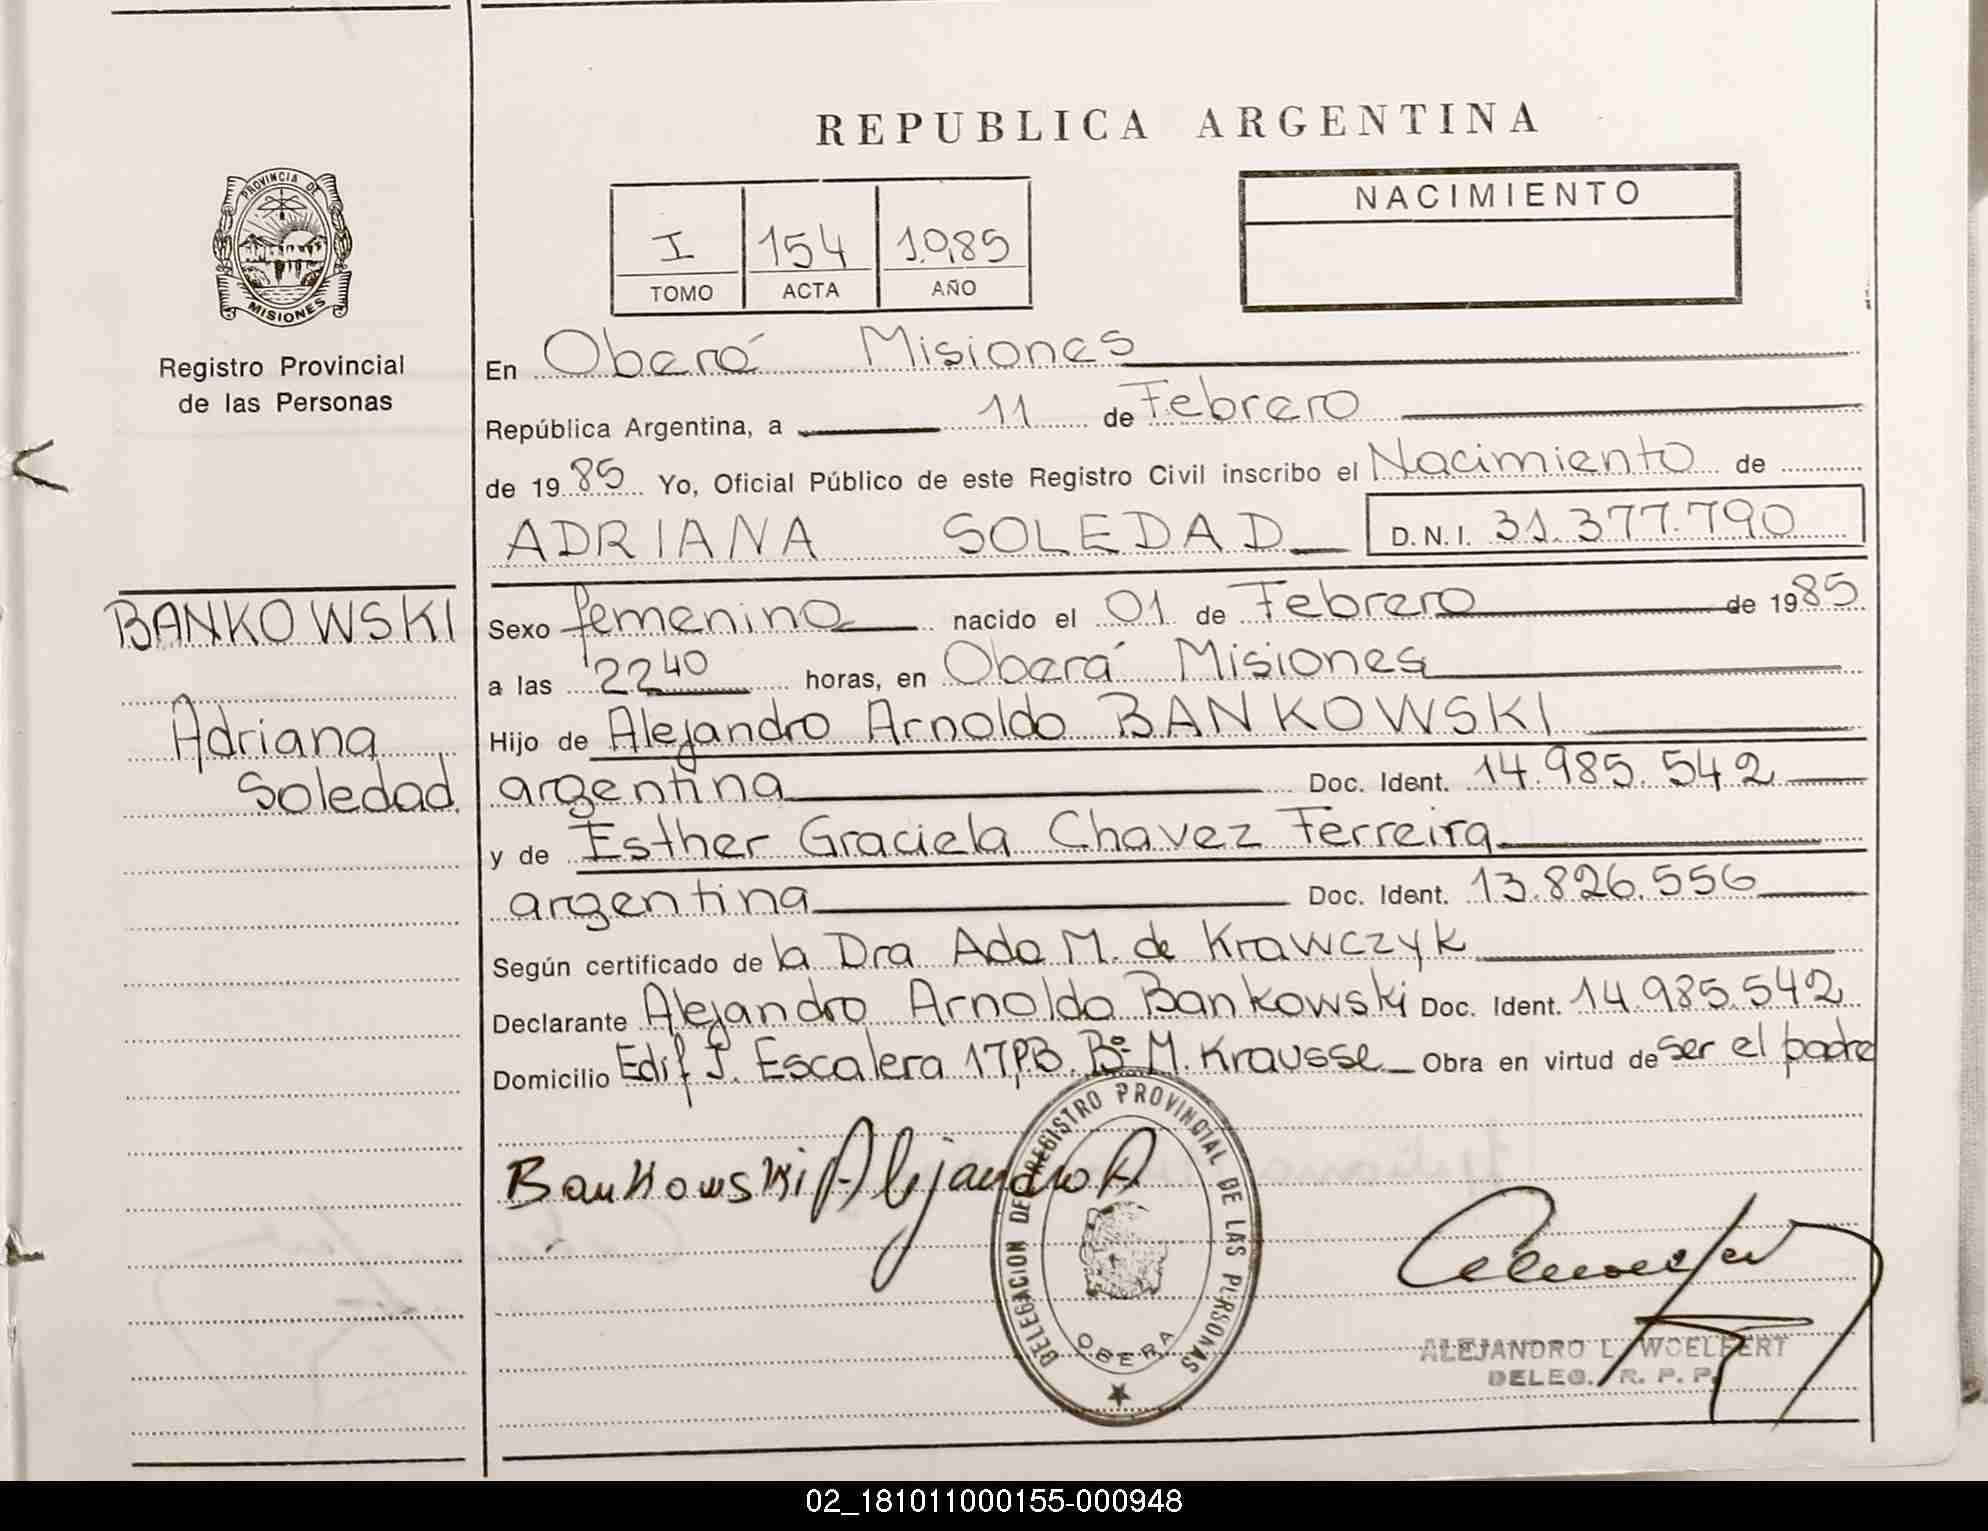 REPUBLICA ARGENTINA
PROVINCIA DE
MISIONES
Registro Provincial
de las Personas
I 154 1.985
TOMO ACTA AÑO
NACIMIENTO
En Oberá Misiones
República Argentina, a 11 de Febrero
de 1985 Yo, Oficial Público de este Registro Civil inscribo el Nacimiento de
ADRIANA SOLEDAD D.N.I. 31.377.790
BANKOWSKI
Adriana
Soledad.
Sexo femenino nacido el 01 de Febrero de 1985
a las 22 40 horas, en Oberá Misiones
Hijo de Alejandro Arnoldo BANKOWSKI
argentina Doc. Ident. 14.985.542
y de Esther Graciela Chavez Ferreira
argentina Doc. Ident. 13.826.556
Según certificado de la Dra Ada M. de Krawczyk
Declarante Alejandro Arnoldo Bankowski Doc. Ident. 14.985.542
Domicilio Edif J. Escalera 17 PB. Bº M. Krausse Obra en virtud de ser el padre
Bankowski Alejandro A
DELEGACION DEL REGISTRO PROVINCIAL DE LAS PERSONAS
OBERA
ALEJANDRO L. WOELFERT
DELEG. R. P. P.
02_181011000155-000948